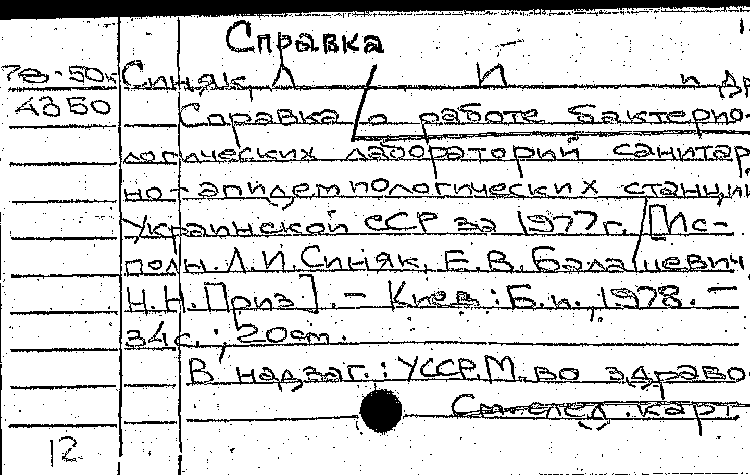 Справка
78-50к Синяк, Л И и др
4350 Справка о работе бактерио-
логических лабораторий санитар
но-эпидемиологических станций
Украинской ССР за 1977г. [Ис-
полн. Л.И.Синяк, Е.В.Балацевич
Н.Н.Приз]. - Киев : Б.и., 1978. -
34с. ; 20см.
В надзаг.: УССР.М-во здраво-
См. след. карт
12